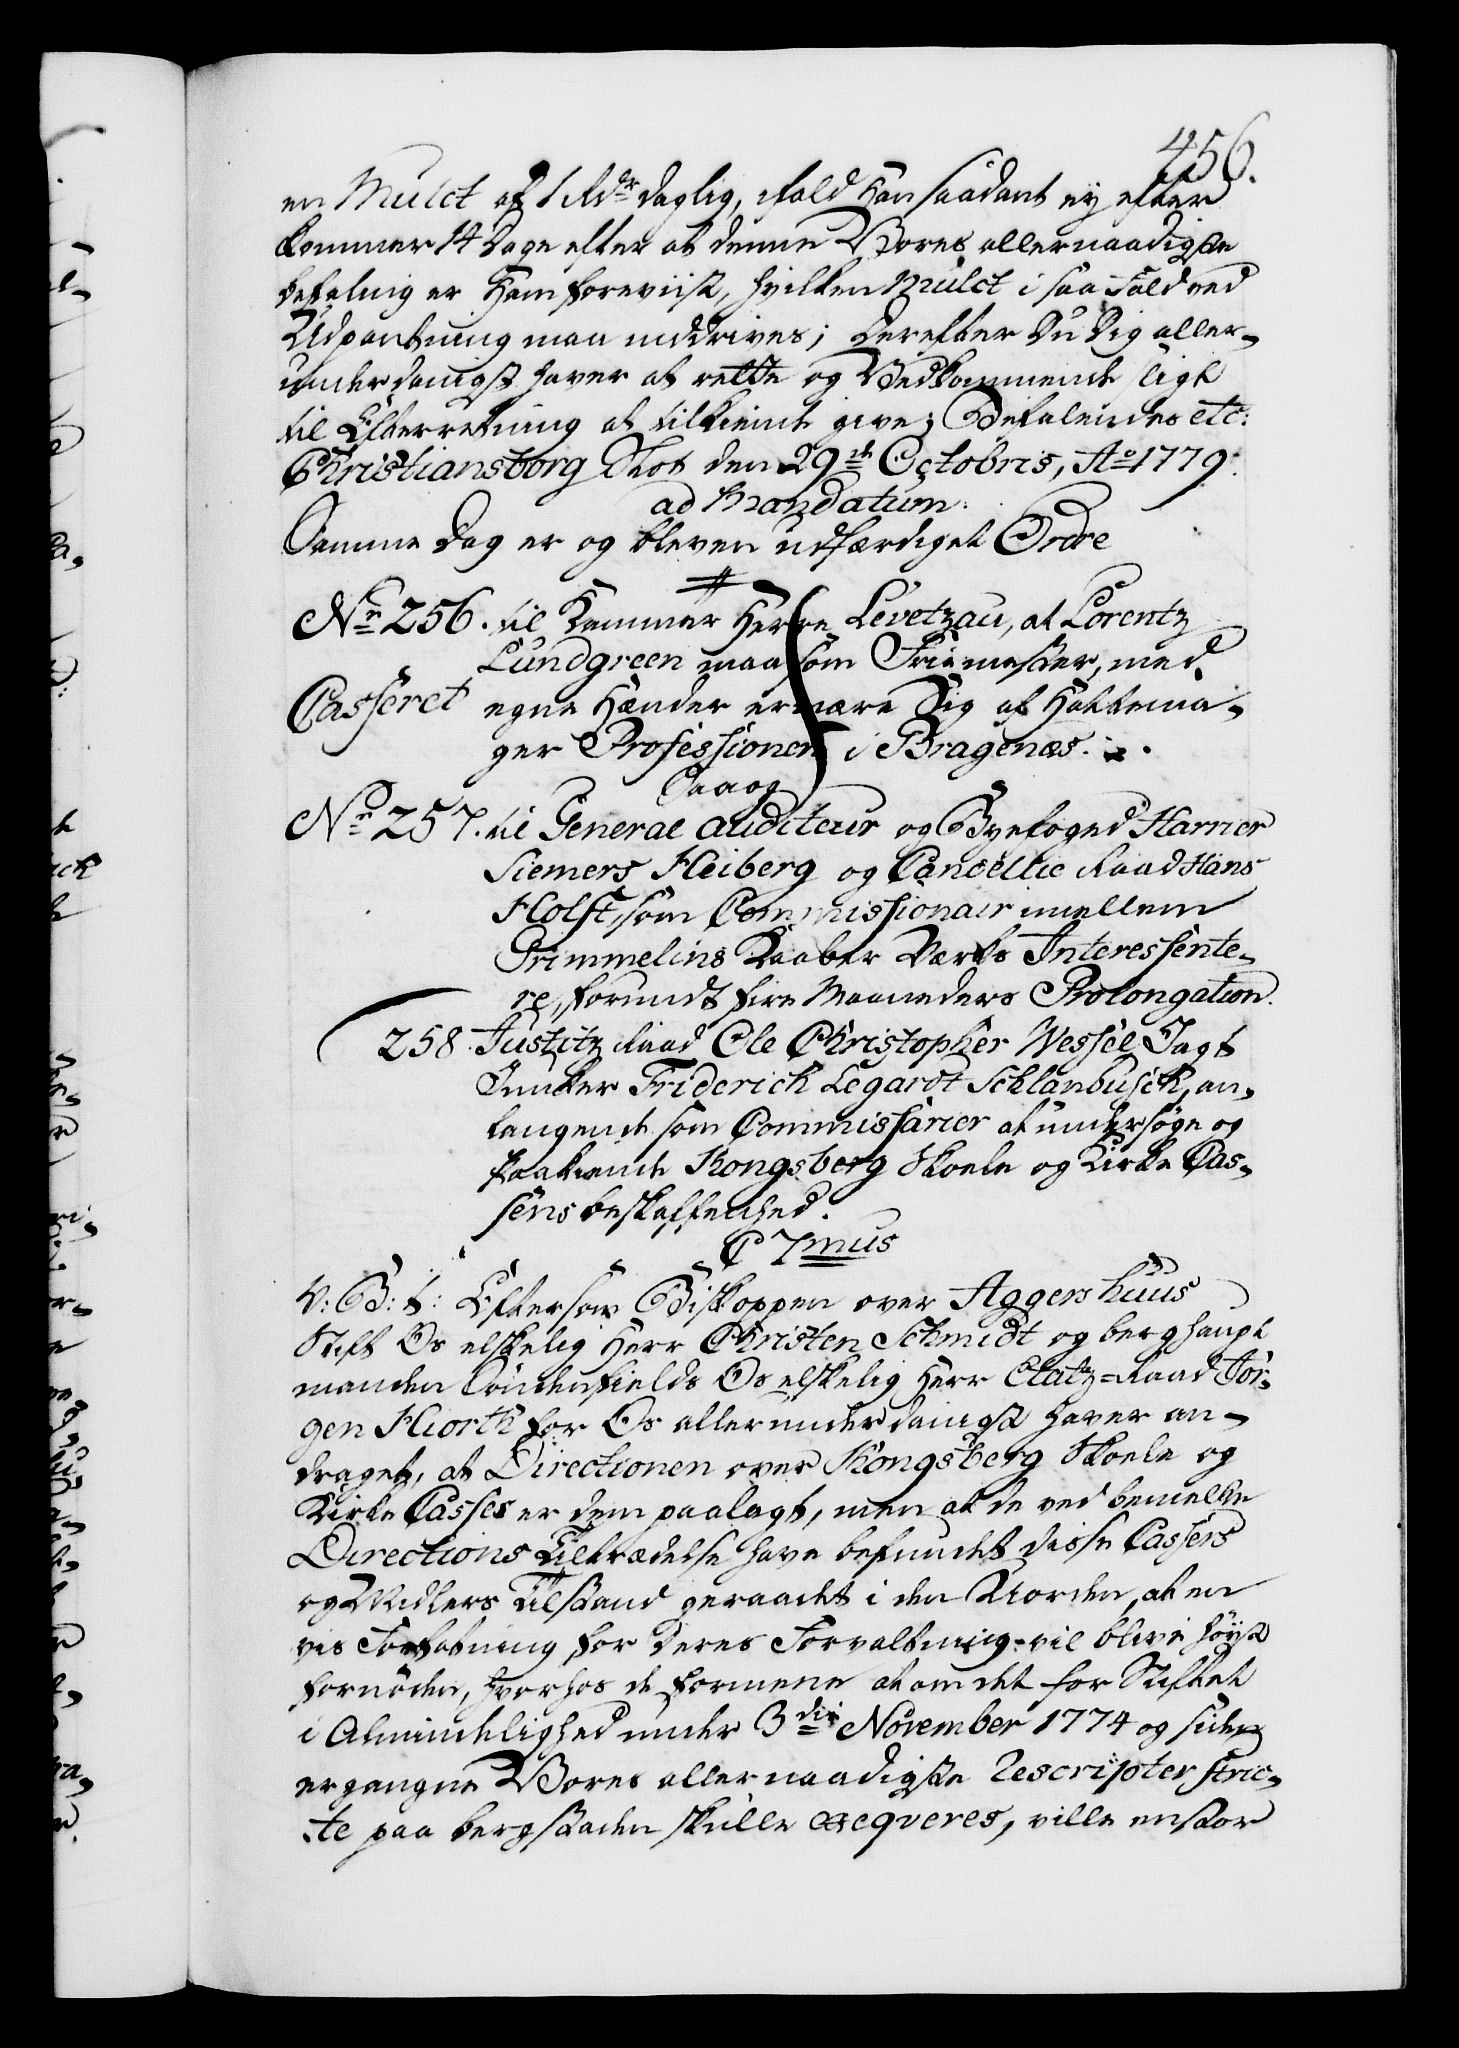 456.
en Mulct af 1 Rdr daglig, ifald Han saadant ey efter
kommer 14 Dage efter at denne Vores allernaadigste
befaling er Ham foreviist, hvilken Mulct i saa Fald ved
Udpantning maa inddrives; Derefter Du Dig aller-
underdanigst haver at rette og Vedkommende sligt
til Efterretning at tilkiende give; Befalendes etc:
Christiansborg Slot den 29de Octobris, Ao 1779.
ad Mandatum.
Samme Dag er og bleven udfærdiget Ordre
Nr 256. til Kammer Herre Levetzau, at Lorentz
Lundgreen maa som Friemester, med
Casseret egne Hænder ernære Sig af Hattema-
ger Professionen i Bragenæs.
Saa og
Nr 257. til General Auditeur og Byefoged Harrier
Siemers Heiberg og Cancellie Raad Hans
Holst, som Commissionair imellem
Grimmelins Kaaber Værks Interessente-
re, forundt fire Maaneders Prolongation.
258. Justitz Raad Ole Christopher Wessel Jagt
Junker Friderich Legardt Schlanbusch, an-
langende som Commissarier at undersøge og
paakiende Kongsberg Skoele og Kirke Cas-
sens beskaffenhed.
C 7mus
V: G: t: Eftersom Biskoppen over Aggershuus
Stift Os elskelig Herr Christen Schmidt og berghaupt
manden Søndenfields Os elskelig Herr Etatz-Raad Jør-
gen Hiorth for Os allerunderdanigst haver an-
draget, at Directionen over Kongsberg Skoele og
Kirke Casses er dem paalagt, men at de ved bemelte
Directions Tiltrædelse have befundet disse Cassers
og Midlers Tilstand geraadet i den Uorden, at en
vis Forfatning for deres Forvaltning vil blive høyst
fornøden, hvorhos de formene at om det for Stiftet
i Almindelighed under 3die November 1774 og siden
ergangne Vores allernaadigste Rescripter stric-
te paa bergstaden skulle exeqveres, ville en stor